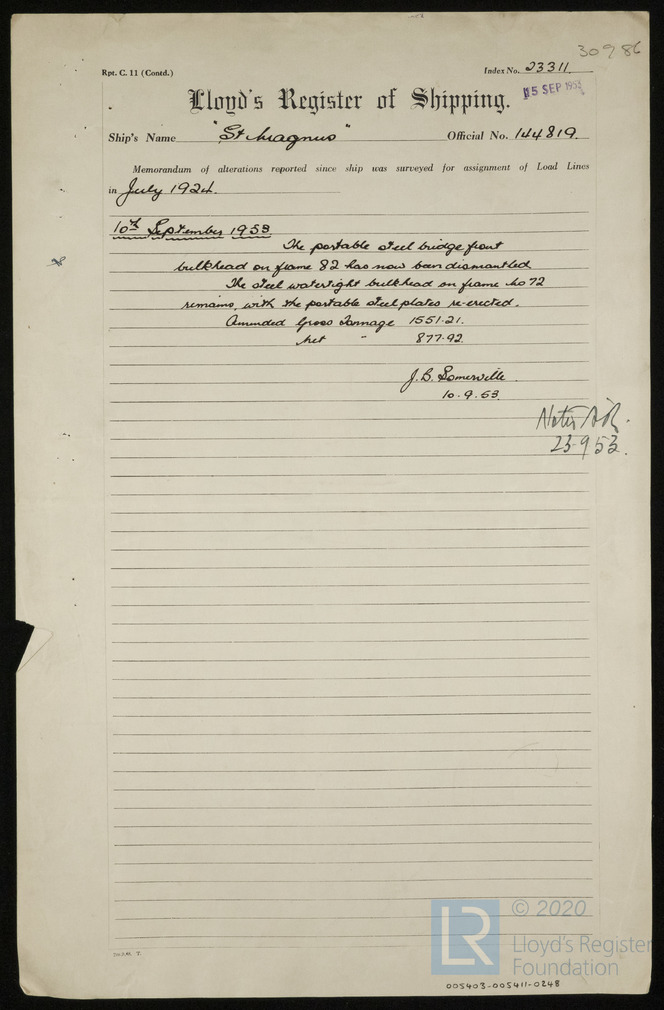 30986
Rpt. C. 11 (Contd.)
Index No. 23311.
15 SEP 1953
Lloyd's Register of Shipping.
Ship's Name "St Magnus"
Official No. 144819.
Memorandum of alterations reported since ship was surveyed for assignment of Load Lines
in July 1924.
10th September 1953
The portable steel bridge front
bulkhead on frame 82 has now been dismantled
The steel watertight bulkhead on frame No 72
remains, with the portable steel plates re-erected.
Amended Gross Tonnage 1551.21.
Net " 877.92.
J. B. Somerville
10.9.53.
Noted
23-9-53.
© 2020
LR
Lloyd's Register
Foundation
005403-005411-0248